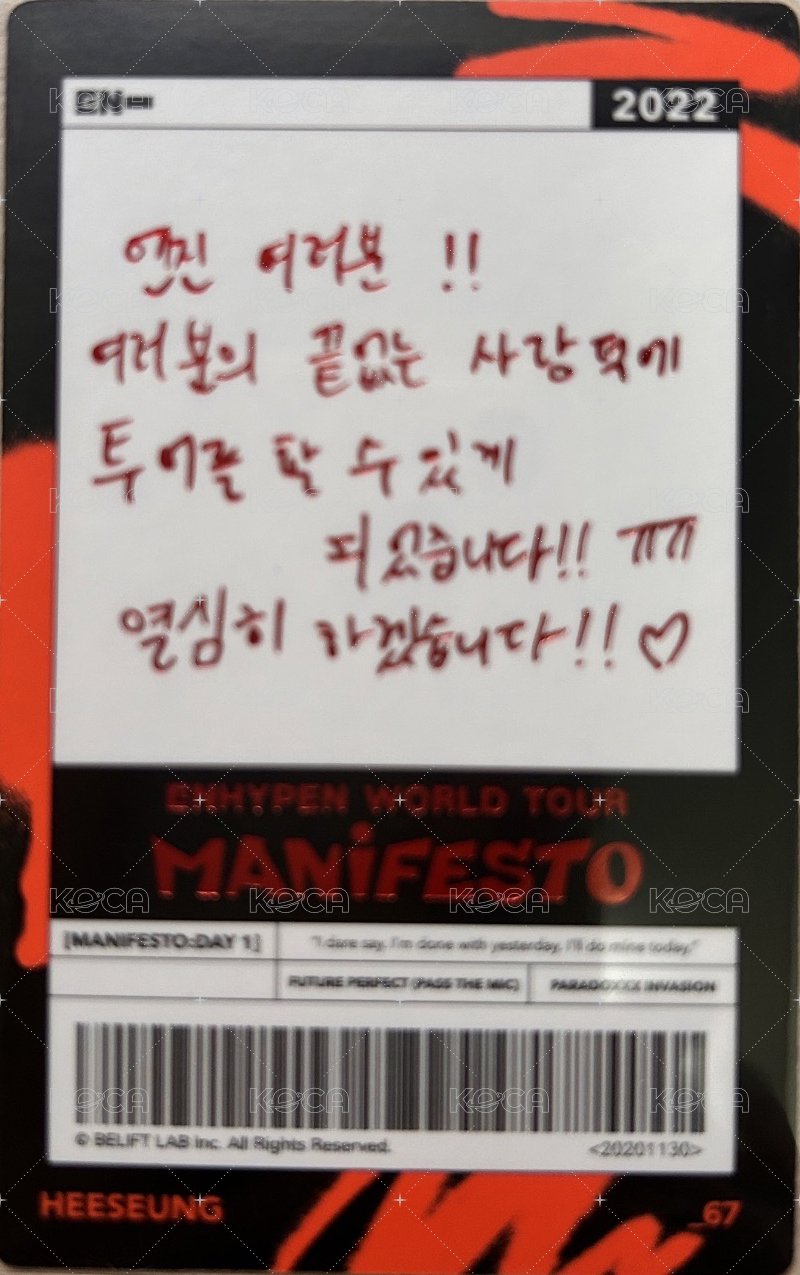 EN-
2022
엔진 여러분 !!
여러분의 끝없는 사랑 덕에
투어를 할 수 있게
되었습니다!! ㅠㅠ
열심히 하겠습니다!! ♡
ENHYPEN WORLD TOUR
MANiFESTO
[MANIFESTO:DAY 1]
"I dare say, I'm done with yesterday, I'll do mine today."
FUTURE PERFECT (PASS THE MIC)
PARADOXXX INVASION
© BELIFT LAB Inc. All Rights Reserved.
<20201130>
HEESEUNG
_67
KECA